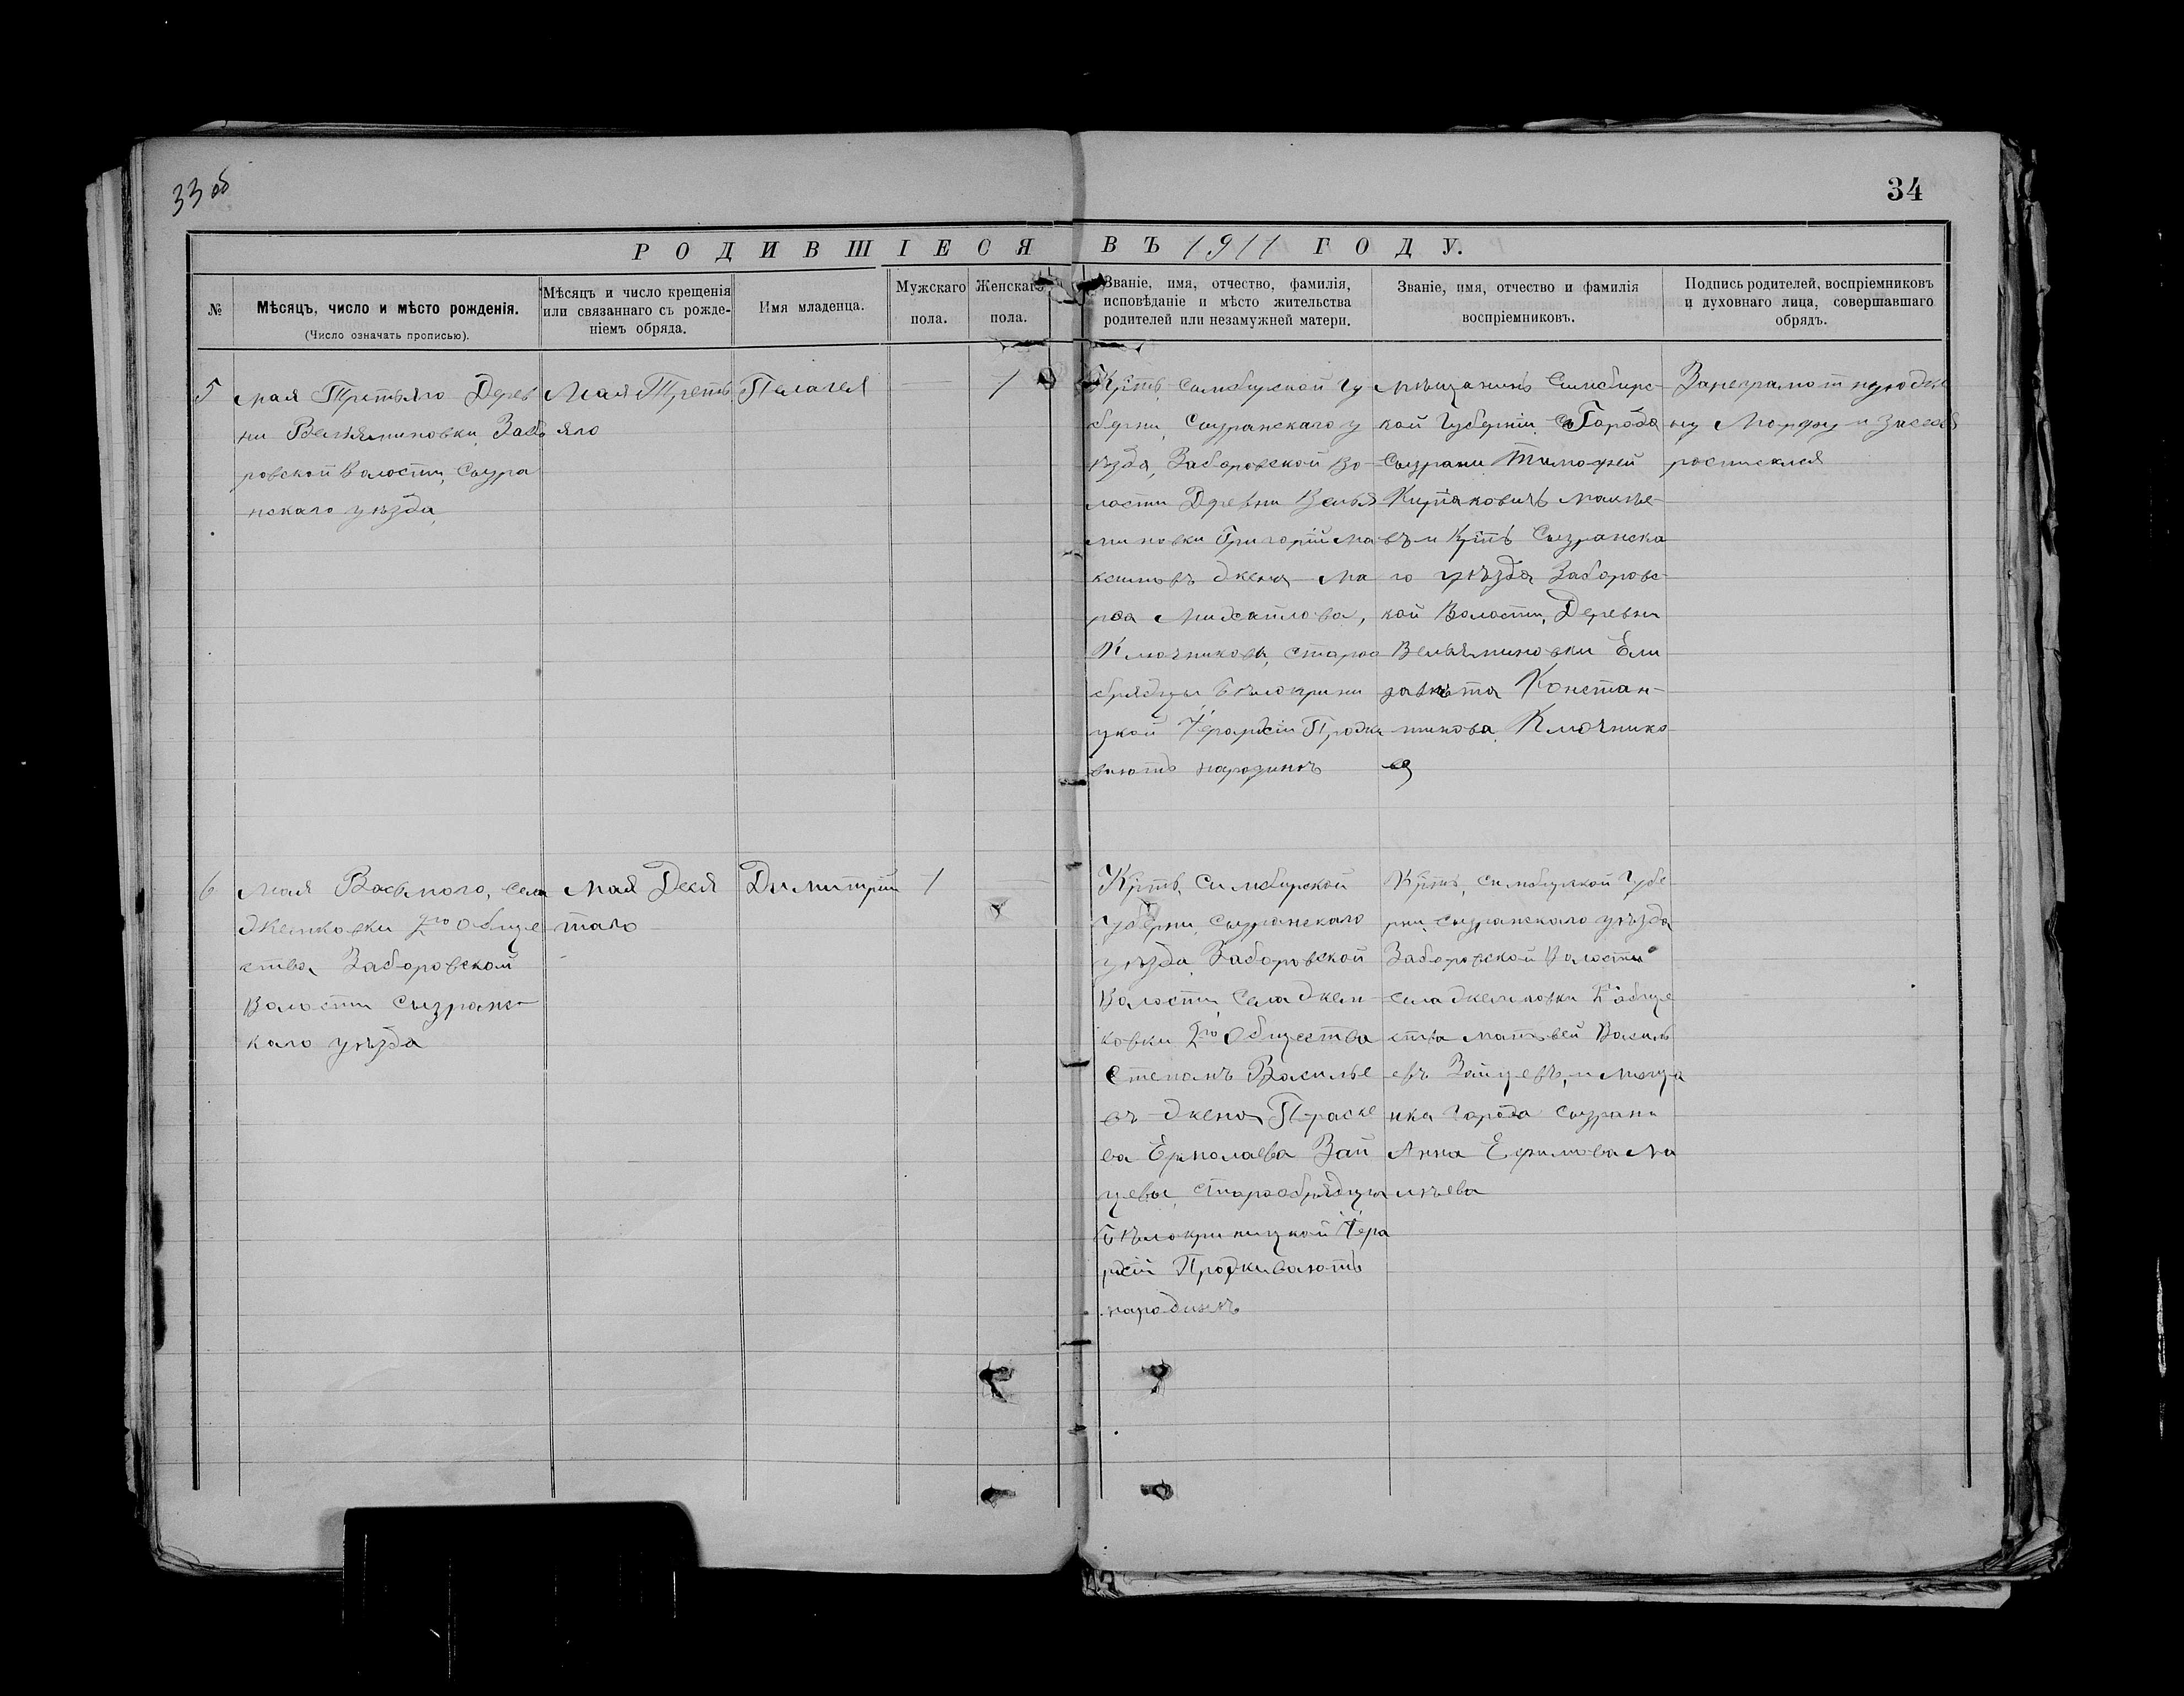 33 об
34
РОДИВШІЕСЯ ВЪ 1911 ГОДУ.
№
Мѣсяцъ, число и мѣсто рожденія.
(Число означать прописью).
Мѣсяцъ и число крещенія
или связаннаго съ рожде-
ніемъ обряда.
Имя младенца.
Мужскаго
пола.
Женскаго
пола.
Званіе, имя, отчество, фамилія,
исповѣданіе и мѣсто жительства
родителей или незамужней матери.
Званіе, имя, отчество и фамилія
воспріемниковъ.
Подпись родителей, воспріемниковъ
и духовнаго лица, совершавшаго
обрядъ.
5
мая Третьяго Дерев
ни Вельяминовки Забо
ровской Волости, Сызра
нскаго уѣзда
Мая Треть
яго
Пелагея
1
Кр̃тъ, Симбирской Гу
берни, Сызранскаго у
ѣзда, Заборовской Во-
лости Деревни Велья
миновки Григорій Ма
ксимовъ жена Ма
рфа Михайлова,
Ключникова, староо
брядцы бѣлокрини
цкой Іерархіи Прожи
вають народинѣ
мѣщанинъ Симбирс-
кой Губерніи Города
Сызрани Тимофей
Киріаковичъ
въ и Кр̃тъ Сызранска
го уѣзда Заборовс-
кой Волости, Деревни
Вельяминовки Ели
завѣта Констан-
тинова Ключнико
ва
Занеграмотную
ну Марфу и засебя
росписался
6
мая Восьмого, села
Жемковки 2го Обще
ства Заборовской
Волости Сызранс-
каго уѣзда
мая Деся
таго
Димитрій
1
Кр̃тъ, Симбирской
Губерни, Сызранскаго
уѣзда Заборовской
Волости, Села Жем-
ковки 2го Общества
Степанъ Василье
въ жена Праске
ва Ермолаева Зай
цева, старообрядцы
Бѣлокриницкой Іера
рхіи Проживають
народинѣ
Кр̃тъ, Симбирской Губе
рни, Сызранскаго уѣзда
Заборовской Волости
села Жемковки 2го Обще
ства Матвей Василь
евъ Зайцевъ, и меща
нка Города Сызрани
Анна Ефимова Ма